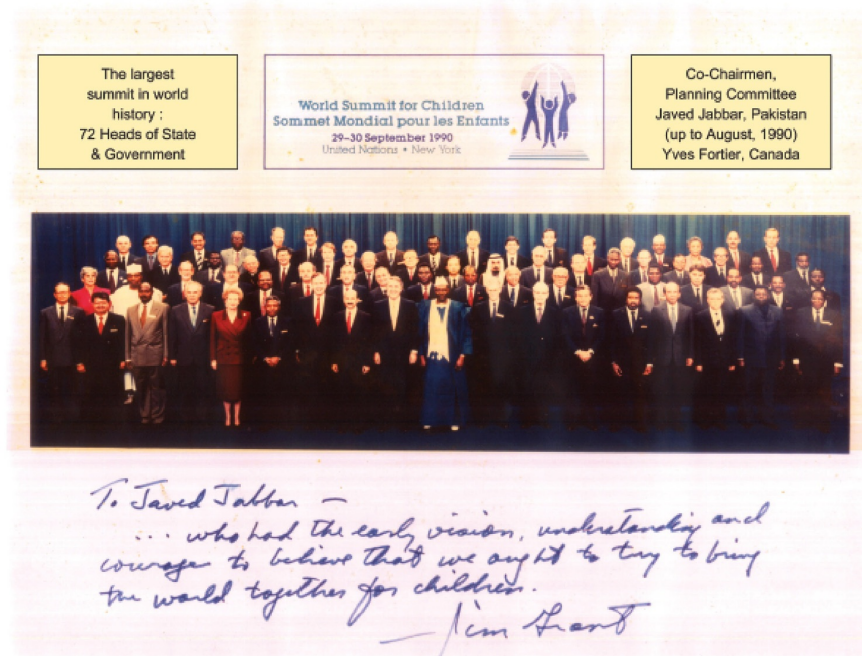 The largest
summit in world
history :
72 Heads of State
& Government
World Summit for Children
Sommet Mondial pour les Enfants
29–30 September 1990
United Nations • New York
Co-Chairmen,
Planning Committee
Javed Jabbar, Pakistan
(up to August, 1990)
Yves Fortier, Canada
To Javed Jabbar —
... who had the early vision, understanding and
courage to believe that we ought to try to bring
the world together for children.
— Jim Grant